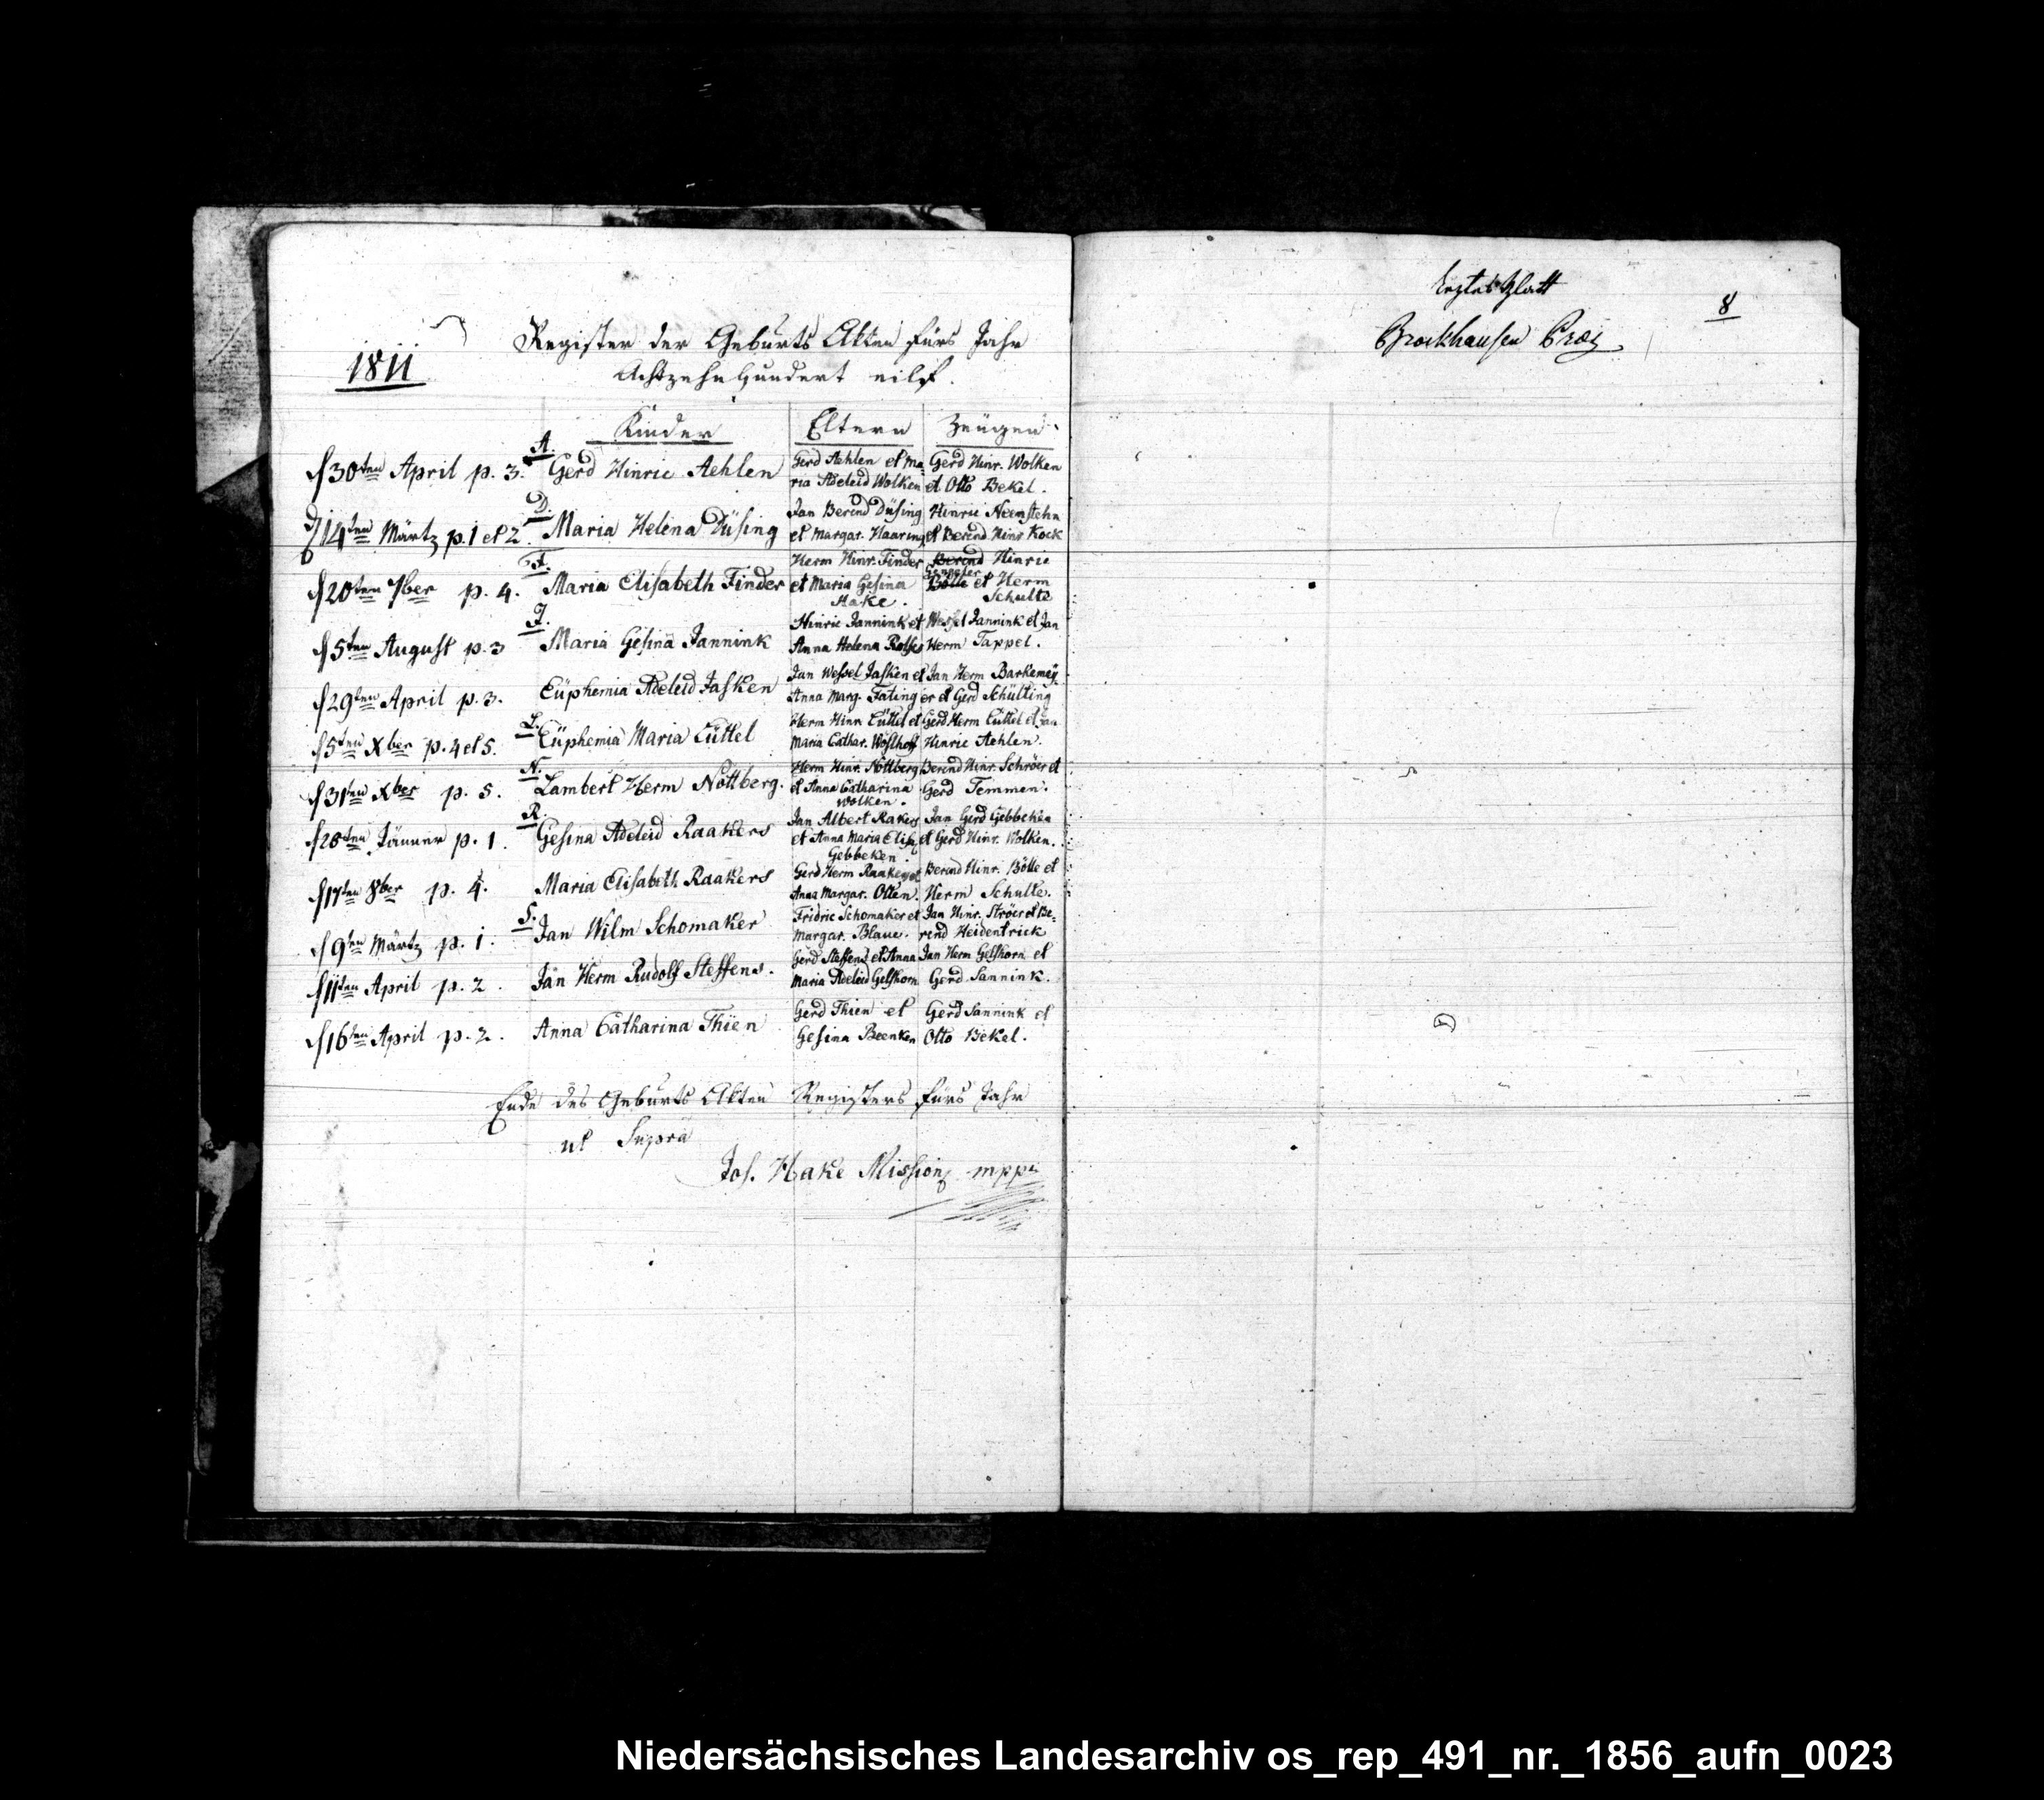 1811
Register der Geburts Akten fürs Jahr
Achtzehnhundert eilf.
Kinder Eltern Zeugen
A.
d 30ten April p. 3. Gerd Hinric Aehlen
Gerd Aehlen et Ma-
ria Adeleid Wolken
Gerd Hinr. Wolken
et Otto Bekel.
D.
d 14ten Märtz p. 1 et 2 Maria Helena Düsing
Jan Berend Düsing
et Margar. Haaring
Hinric Neemstehn
et Berend Hinr Kock
F.
d 20ten 7ber p. 4. Maria Elisabeth Finder
Herm Hinr. Finder
et Maria Gesina
Hake.
Berend Hinric
Bölle et Herm
Schulte
J.
d 5ten August p. 3 Maria Gesina Jannink
Hinric Jannink et
Anna Helena Rolfes
Wessel Jannink et Jan
Herm Tappel.
d 29ten April p. 3. Euphemia Adeleid Jasken
Jan Wessel Jasken et
Anna Marg. Fating
Jan Herm Barkemey
er et Gerd Schülting
L.
d 5ten Xber p. 4 et 5. Euphemia Maria Lüttel
Herm Hinr Lüttel et
Maria Cathar. Wösthoff
Gerd Herm Lüttel et Jan
Hinric Aehlen.
N.
d 31ten Xber p. 5. Lambert Herm Nottberg.
Herm Hinr. Nottberg
et Anna Catharina
Wolken.
Berend Hinr. Schröer et
Gerd Temmen.
R.
d 28ten Jänner p. 1. Gesina Adeleid Raakers
Jan Albert Rakers
et Anna Maria Elis
Gebbeken.
Jan Gerd Gebbeken
et Gerd Hinr. Wolken.
d 17ten 8ber p. 4. Maria Elisabeth Raakers
Gerd Herm Raakers et
Anna Margar. Otten.
Berend Hinr. Bölle et
Herm Schulte.
S.
d 9ten Märtz p. 1. Jan Wilm Schomaker
Fridric Schomaker et
Margar. Blaue.
Jan Hinr. Ströer et Be-
rend Heidentrick
d 11ten April p. 2. Jan Herm Rudolf Steffens.
Gerd Steffens et Anna
Maria Adeleid Gelshorn
Jan Herm Gelshorn et
Gerd Sannink.
d 16ten April p. 2. Anna Catharina Thien
Gerd Thien et
Gesina Beenken
Gerd Sannink et
Otto Bekel.
Ende des Geburts Akten Registers fürs Jahr
ut Supra
Jos. Hake Mission mppr
8
Brockhausen
Niedersächsisches Landesarchiv os_rep_491_nr._1856_aufn_0023